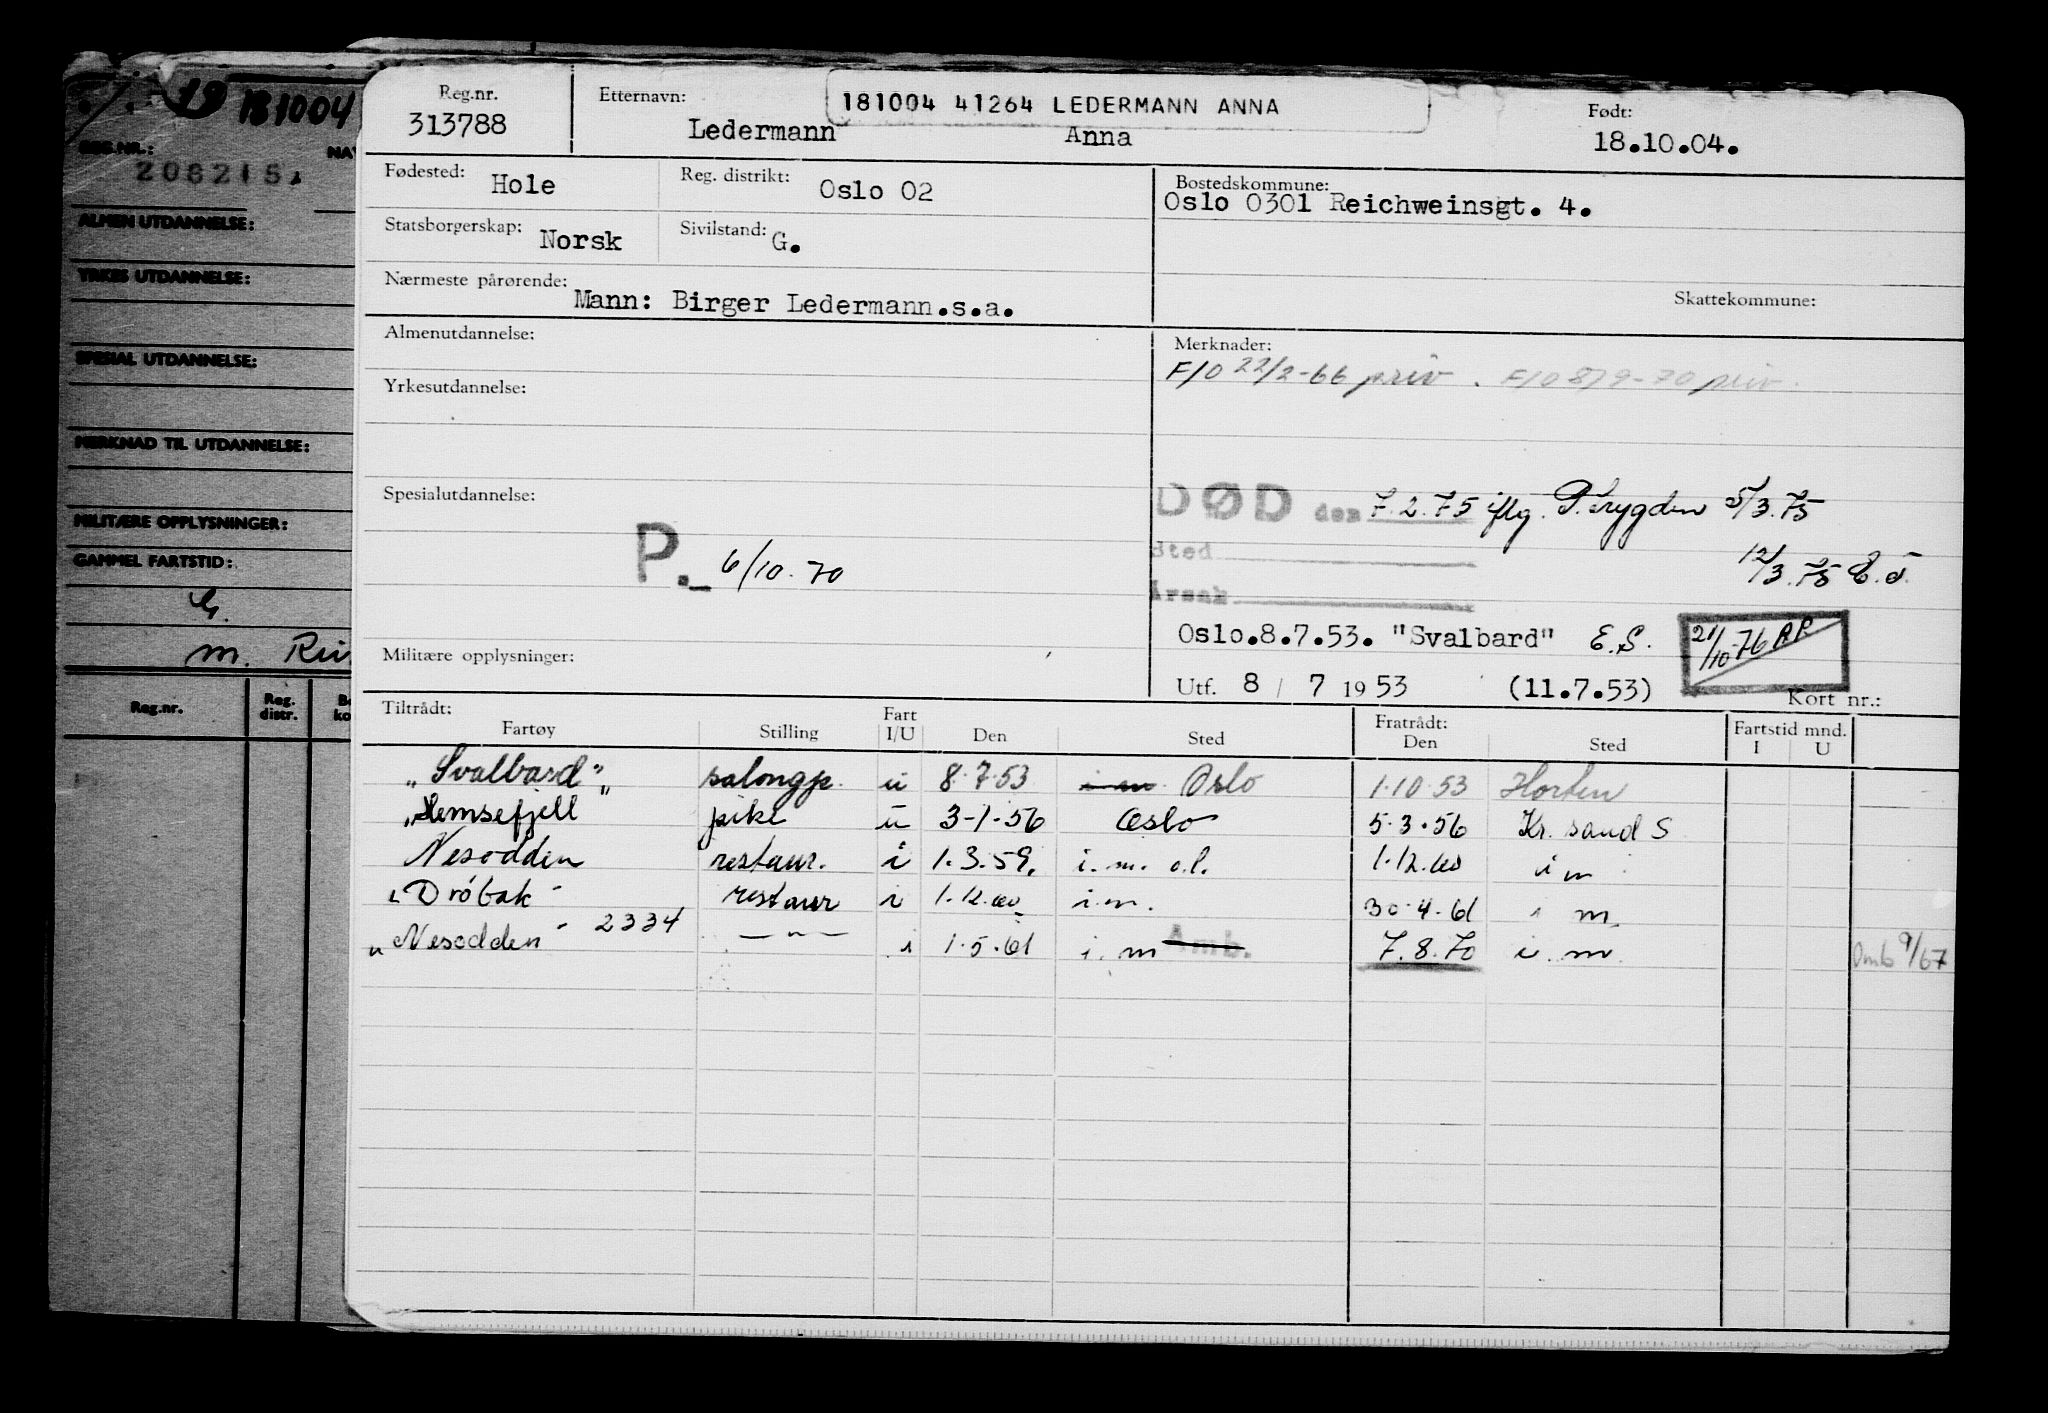 19 181004
REG.NR.:
206215
ALMEN UTDANNELSE:
YRKES UTDANNELSE:
SPESIAL UTDANNELSE:
MERKNAD TIL UTDANNELSE:
MILITÆRE OPPLYSNINGER:
GAMMEL FARTSTID:
G.
m.
Reg.nr. Reg. distr.
Reg.nr. Etternavn: 181004 41264 LEDERMANN ANNA Født:
313788 Ledermann Anna 18.10.04.
Fødested: Hole Reg. distrikt: Oslo 02 Bostedskommune:
Oslo 0301 Reichweinsgt. 4.
Statsborgerskap: Norsk Sivilstand: G.
Nærmeste pårørende: Mann: Birger Ledermann.s.a. Skattekommune:
Almenutdannelse:
Merknader:
F/O 22/2-66 priv. F/O 8/9-70 priv.
Yrkesutdannelse:
Spesialutdannelse:
DØD den 7.2.75 iflg. P.trygden 5/3.75
Sted
12/3.75
Årsak
P. 6/10.70
Oslo.8.7.53. "Svalbard" E.S.
21/10-76
Militære opplysninger:
Utf. 8 / 7 1953 (11.7.53) Kort nr.:
Tiltrådt: Fratrådt: Fartstid mnd.
Fartøy Stilling Fart I/U Den Sted Den Sted I U
"Svalbard" salongp. u 8.7.53 Oslo 1.10.53 Horten
"Hemsefjell pike u 3-1-56 Oslo 5.3.56 Kr.sand S
Nesodden restaur. i 1.3.59. i.m. o.l. 1.12.60 i m
"Drøbak" restaur i 1.12.60 i.m. 30.4.61 i m.
"Nesodden" 2334 —"— i 1.5.61 i. m Amb. 7.8.70 i. m. Omb 9/67